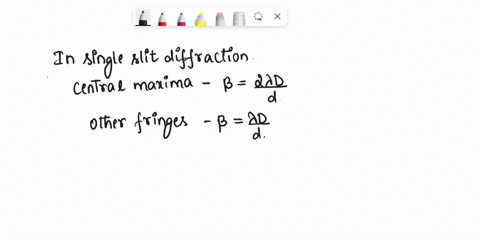 In single slit diffraction.
Central maxima - β = 2λD/d.
other fringes - β = λD/d.